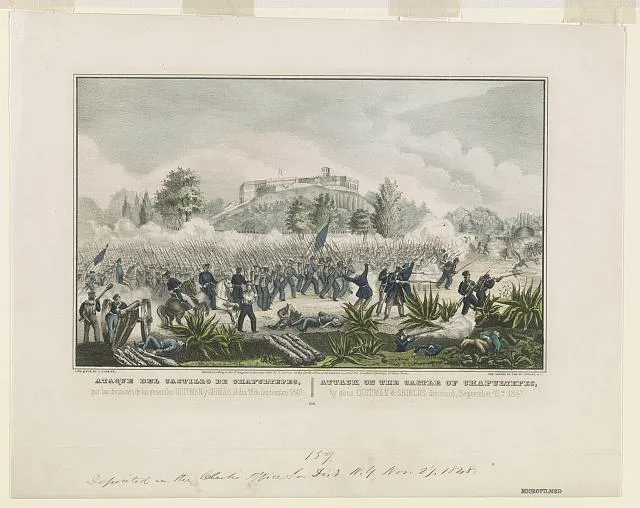 LITH & PUB. BY N. CURRIER,
ATAQUE DEL CASTILLO DE CHAPULTEPEC,
por las divisiones de los generales QUITMAN y SHIELDS, el dia 13 de Septiembre 1847.
ATTACK ON THE CASTLE OF CHAPULTEPEC,
by gens. QUITMAN & SHIELDS, divisions, September 13th 1847.
159
Deposited in the Clerks Office So. Dist N.Y. Nov. 27, 1848
MICROFILMED